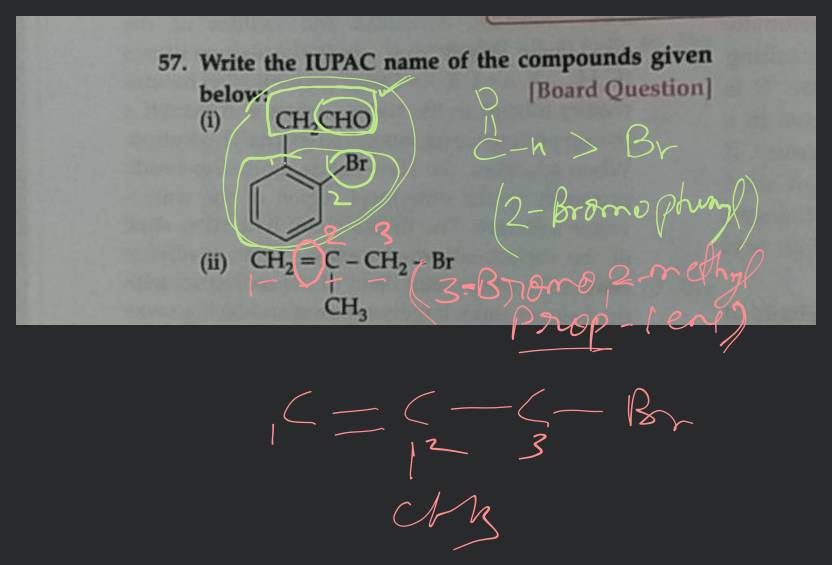 57. Write the IUPAC name of the compounds given
below:
[Board Question]
(i) CH₂CHO
Br
2
O
C-H > Br
(2-Bromophenyl)
2 3
(ii) CH₂ = C – CH₂ – Br
1
CH₃
(3-Bromo, 2-methyl
Prop-1ene)
C = C – C – Br
1 2 3
CH3